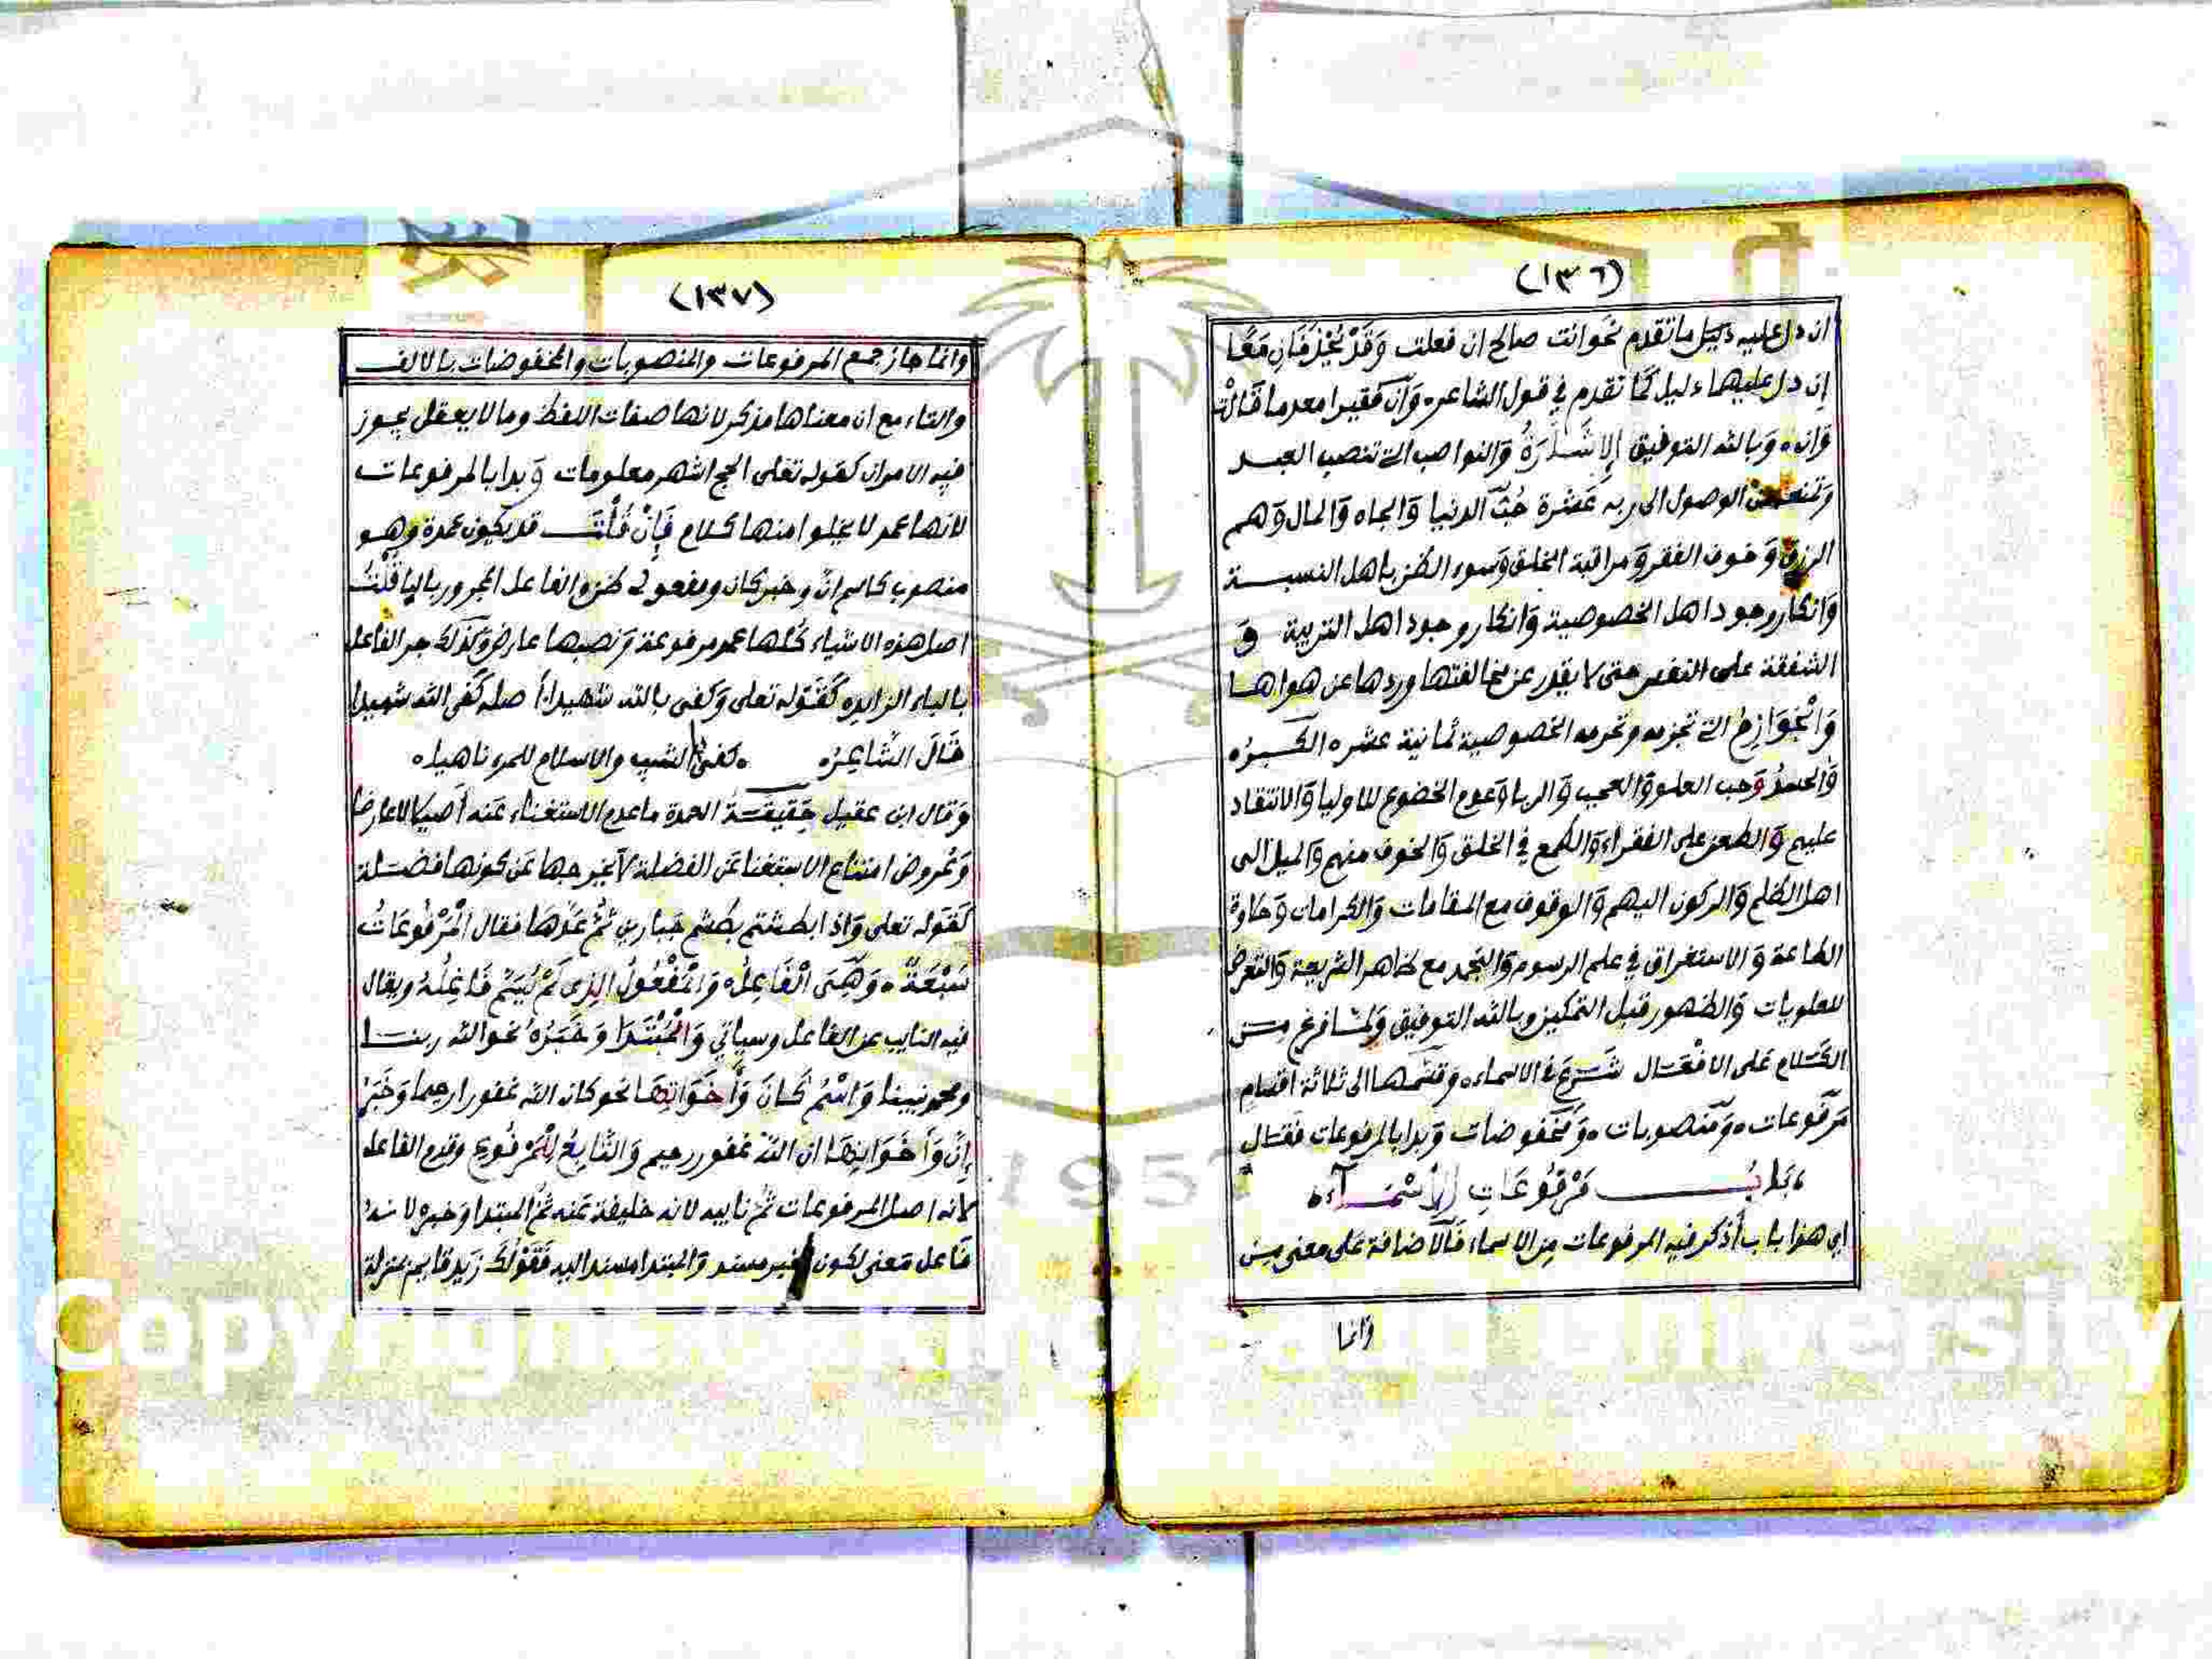 (١٣٦)
ان دل عليه دليل ما تقدم نحو انت صالح ان فعلت وَقَدْ يُحْذَفَانِ مَعًا
إن دل عليهما دليل كما تقدم في قول الشاعر ه وَان كان فقيرا معدما قَالَتْ
وَان ه وَبالله التوفيق الإشَارَةُ وَالنواصب التي تنصب العبد
وَتمنعه من الوصول الى ربه عَشْرة حُبّ الدنيا وَالجاه وَالمال وَهم
الرزق وَخوف الفقر وَمراقبة الخلق وَسوء الظن باهل النسبة
وَانكار وجود اهل الخصوصية وَانكار وجود اهل التربية وَ
الشفقة على النفس حتى لا يقدر عن مخالفتها وردها عن هواها
وَالْجَوَازِمُ التي تجزمه وتحرمه الخصوصية ثمانية عشر ه الكبر ه
وَالحسد وَحب العلو وَالعجب وَالريا وَعدم الخضوع للاوليا وَالانتقاد
عليهم وَالطعن على الفقراء وَالطمع في الخلق وَالخوف منهم وَالميل الى
اهل الظلم وَالركون اليهم وَالوقوف مع المقامات وَالكرامات وَحلاوة
الطاعة وَالاستغراق في علم الرسوم وَالتجمد مع ظاهر الشريعة وَالتعرض
للعلويات وَالظهور قبل التمكين وبالله التوفيق وَلمّا فرغ من
الكَلام عَلى الافعَال شَرَعَ في الاسماء ه وقسّمها الى ثلاثة اقسام
مَرفوعات ه وَمنصوبات ه وَمخفوضات وَبدا بالمرفوعات فقال
ه بَابُ مَرْفُوعَاتِ الأَسْمَآء ه
اي هذا باب أذكر فيه المرفوعات مِن الاسماء فَالاضافة عَلى معنى من
وَانما
(١٣٧)
وانما جاز جمع المرفوعات والمنصوبات والمخفوضات بالالف
والتاء مع ان معناها مذكر لانها صفات اللفظ وما لا يعقل يجوز
فيه الامران كقوله تعلى الحج اشهر معلومات وَبدا بالمرفوعات
لانها عمد لا يخلوا منها كلام فَإِنْ قُلْتَ قد يكون عمدة وهو
منصوب كاسم انّ وخبر كان ومفعولي ظن والفاعل المجرور بالبا قُلْتُ
اصل هذه الاشياء كلها عمد مرفوعة وَنصبها عارض وَكذلك جر الفاعل
بالباء الزايده كَقَوْله تعلى وَكفى بالله شهيدا أصله كَفى الله شهيدا
قَالَ الشَّاعِرُ ه ه كفى الشيب والاسلام للمرء ناهيا ه
وَقال ابن عقيل حَقيقَةُ العمدة ما عدم الاستغناء عَنه أصيلا لا عارضا
وَعُروض امتناع الاستغنا عَن الفضلة لا يخرجها عَن كونها فضلة
كَقَوله تعلى وَاذا بطشتم بطشتم جَبارين ثُمَّ عَدَّهَا فقال الْمَرْفُوعَاتُ
سَبْعَةٌ ه وَهِيَ الْفَاعِلُ ه وَالْمَفْعُولُ الذِى لَمْ يُسَمَّ فَاعِلُهُ ويقال
فيه النايب عن الفاعل وسياتي وَالْمُبْتَدَا وَخَبَرُهُ نحو الله ربنا
ومحمد نبينا وَاسْمُ كَانَ وَأَخَوَاتِهَا نحو كان الله غفورا رحيما وَخَبَرُ
إِنَّ وَأَخَوَاتِهَا ان الله غفور رحيم وَالتَّابِعُ لِلْمَرْفُوعِ وقدم الفاعل
لانه اصل المرفوعات ثُمّ نايبه لانه خليفة عَنه ثُمّ المبتدا وَخبره لانهُ
فَاعل مَعنى لكون الخبر مسند وَالمبتدا مسند اليه فَقَوْلُكَ زَيد قايم بمنزلة